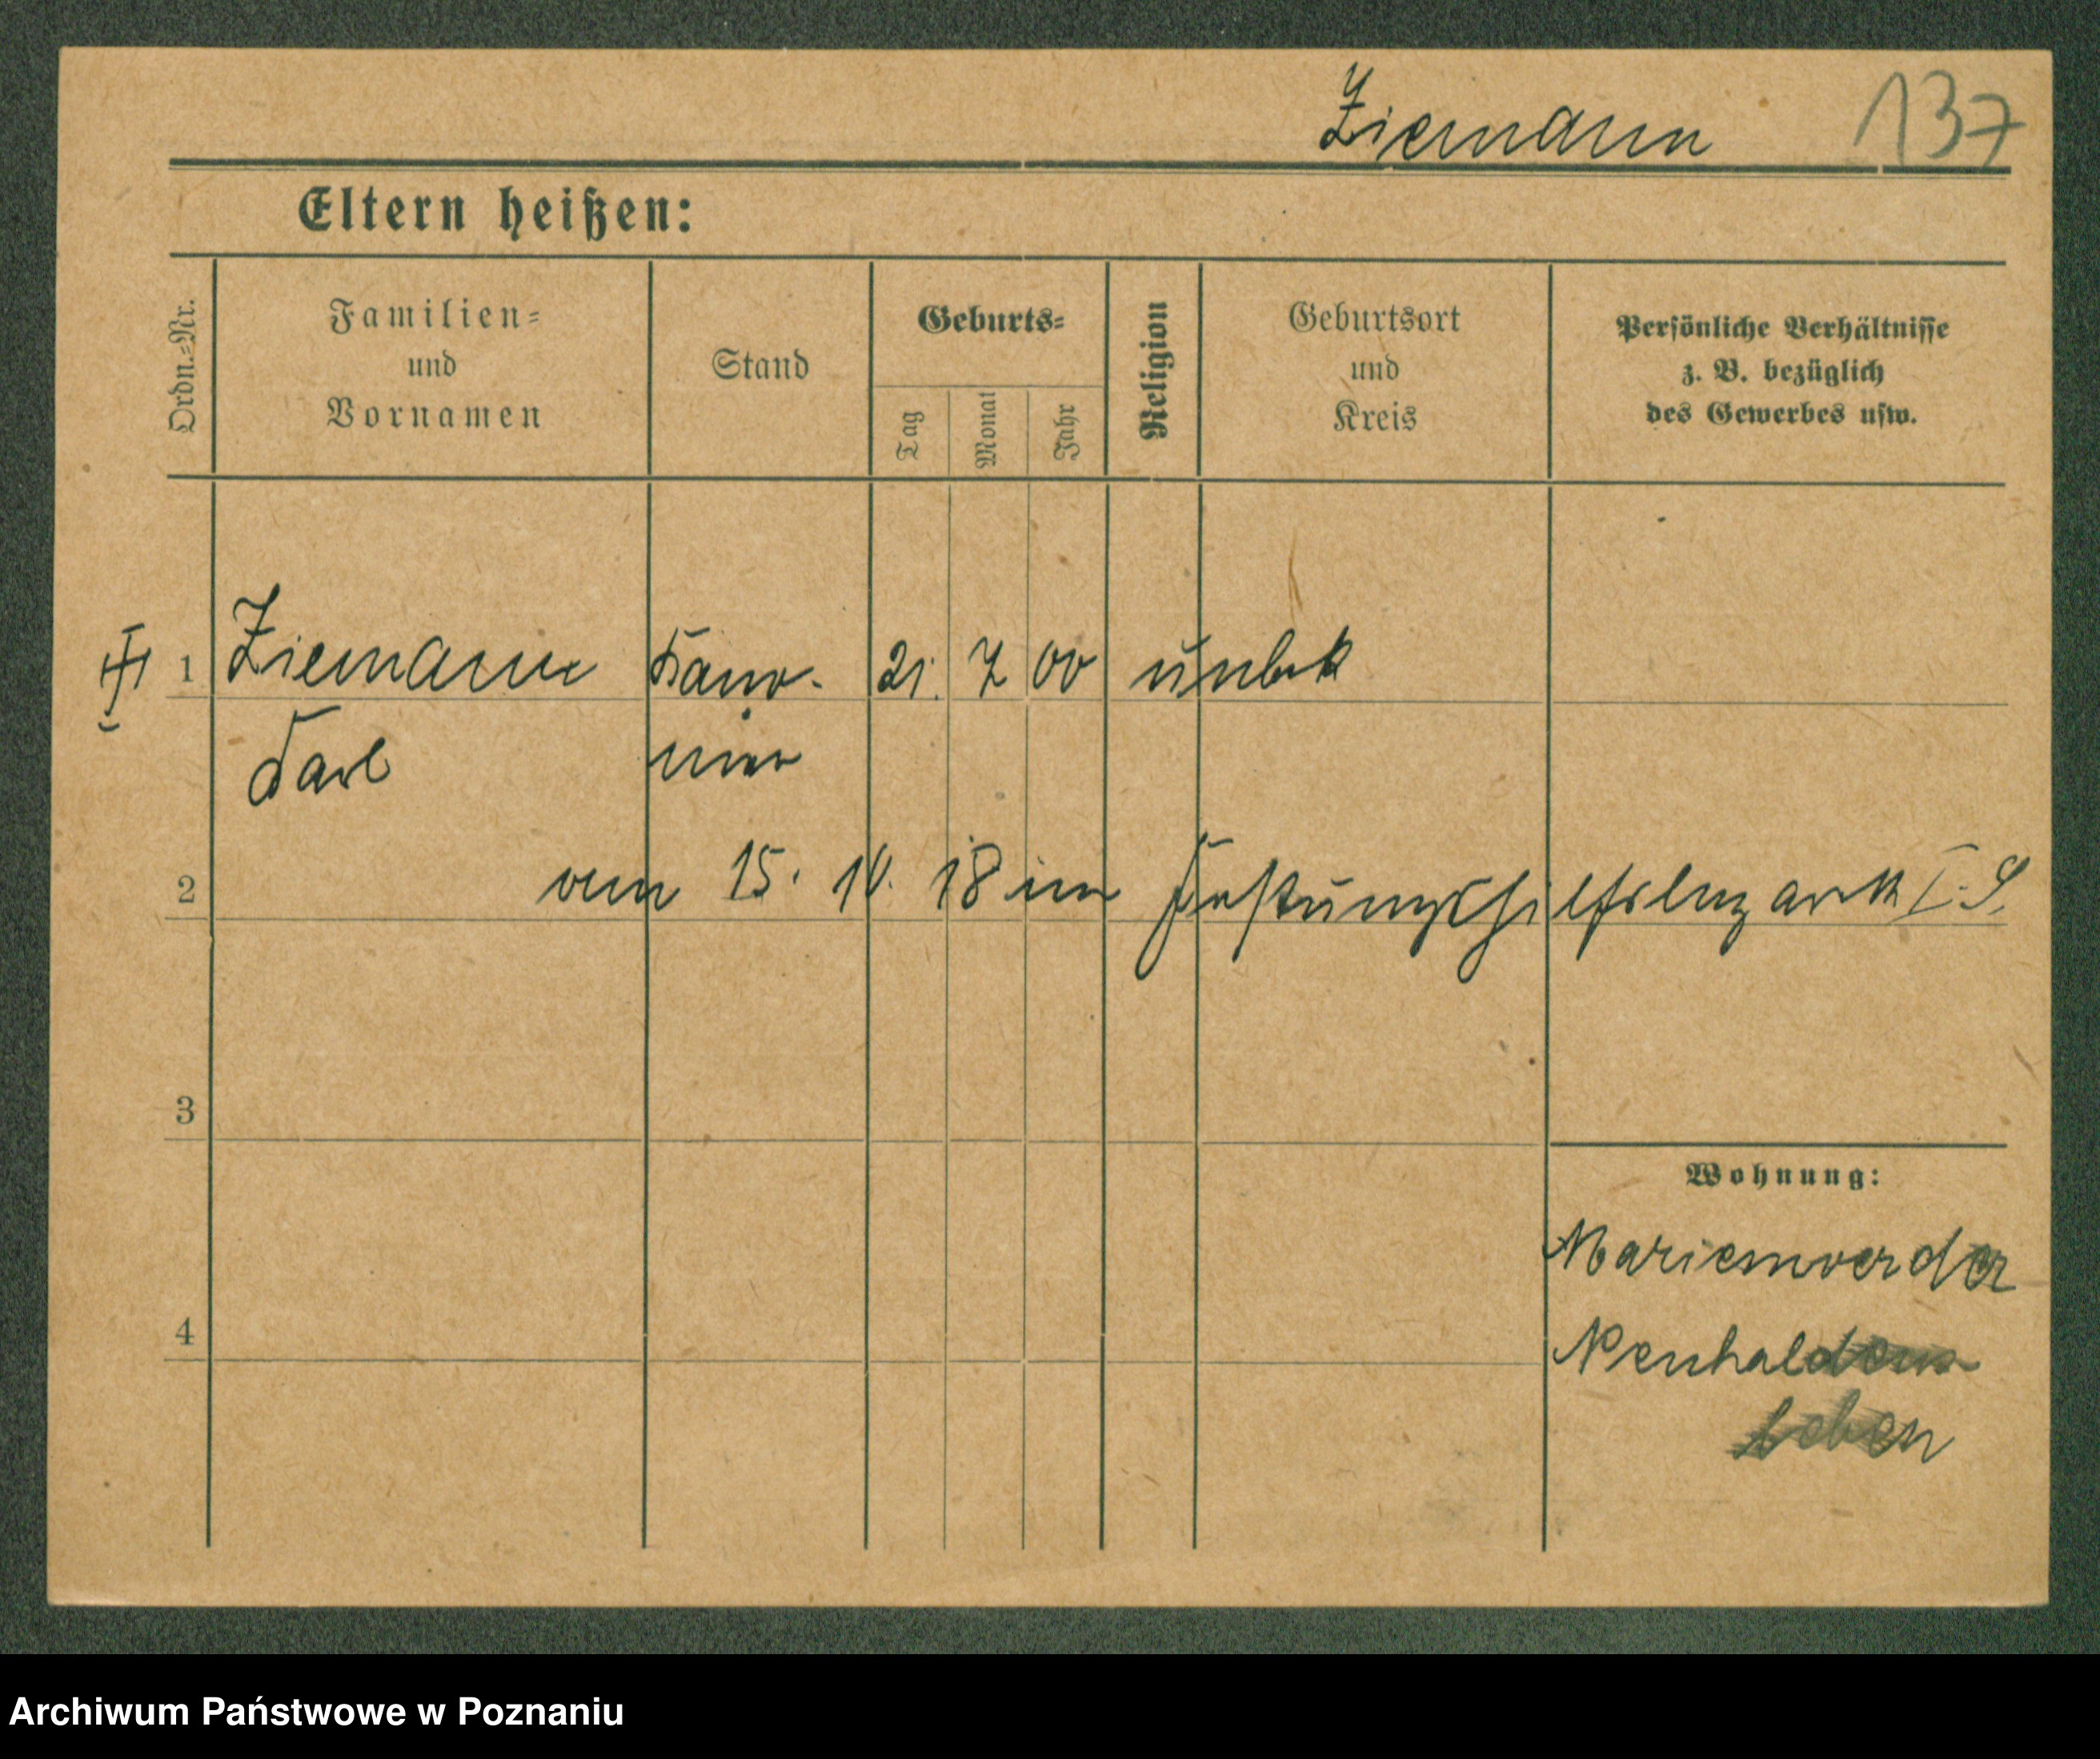 Ziemann 137
Eltern heißen:
Ordn.-Nr.
Familien-
und
Vornamen
Stand
Geburts-
Tag
Monat
Jahr
Religion
Geburtsort
und
Kreis
Persönliche Verhältnisse
z. B. bezüglich
des Gewerbes usw.
1 Ziemann Kano- 21. 7 00 unbek
Karl nier
2 vom 15. 10. 18 im Festungshilfslazarett I. S.
3
4
Wohnung:
Marienwerder
Neuhaldens
leben
Archiwum Państwowe w Poznaniu